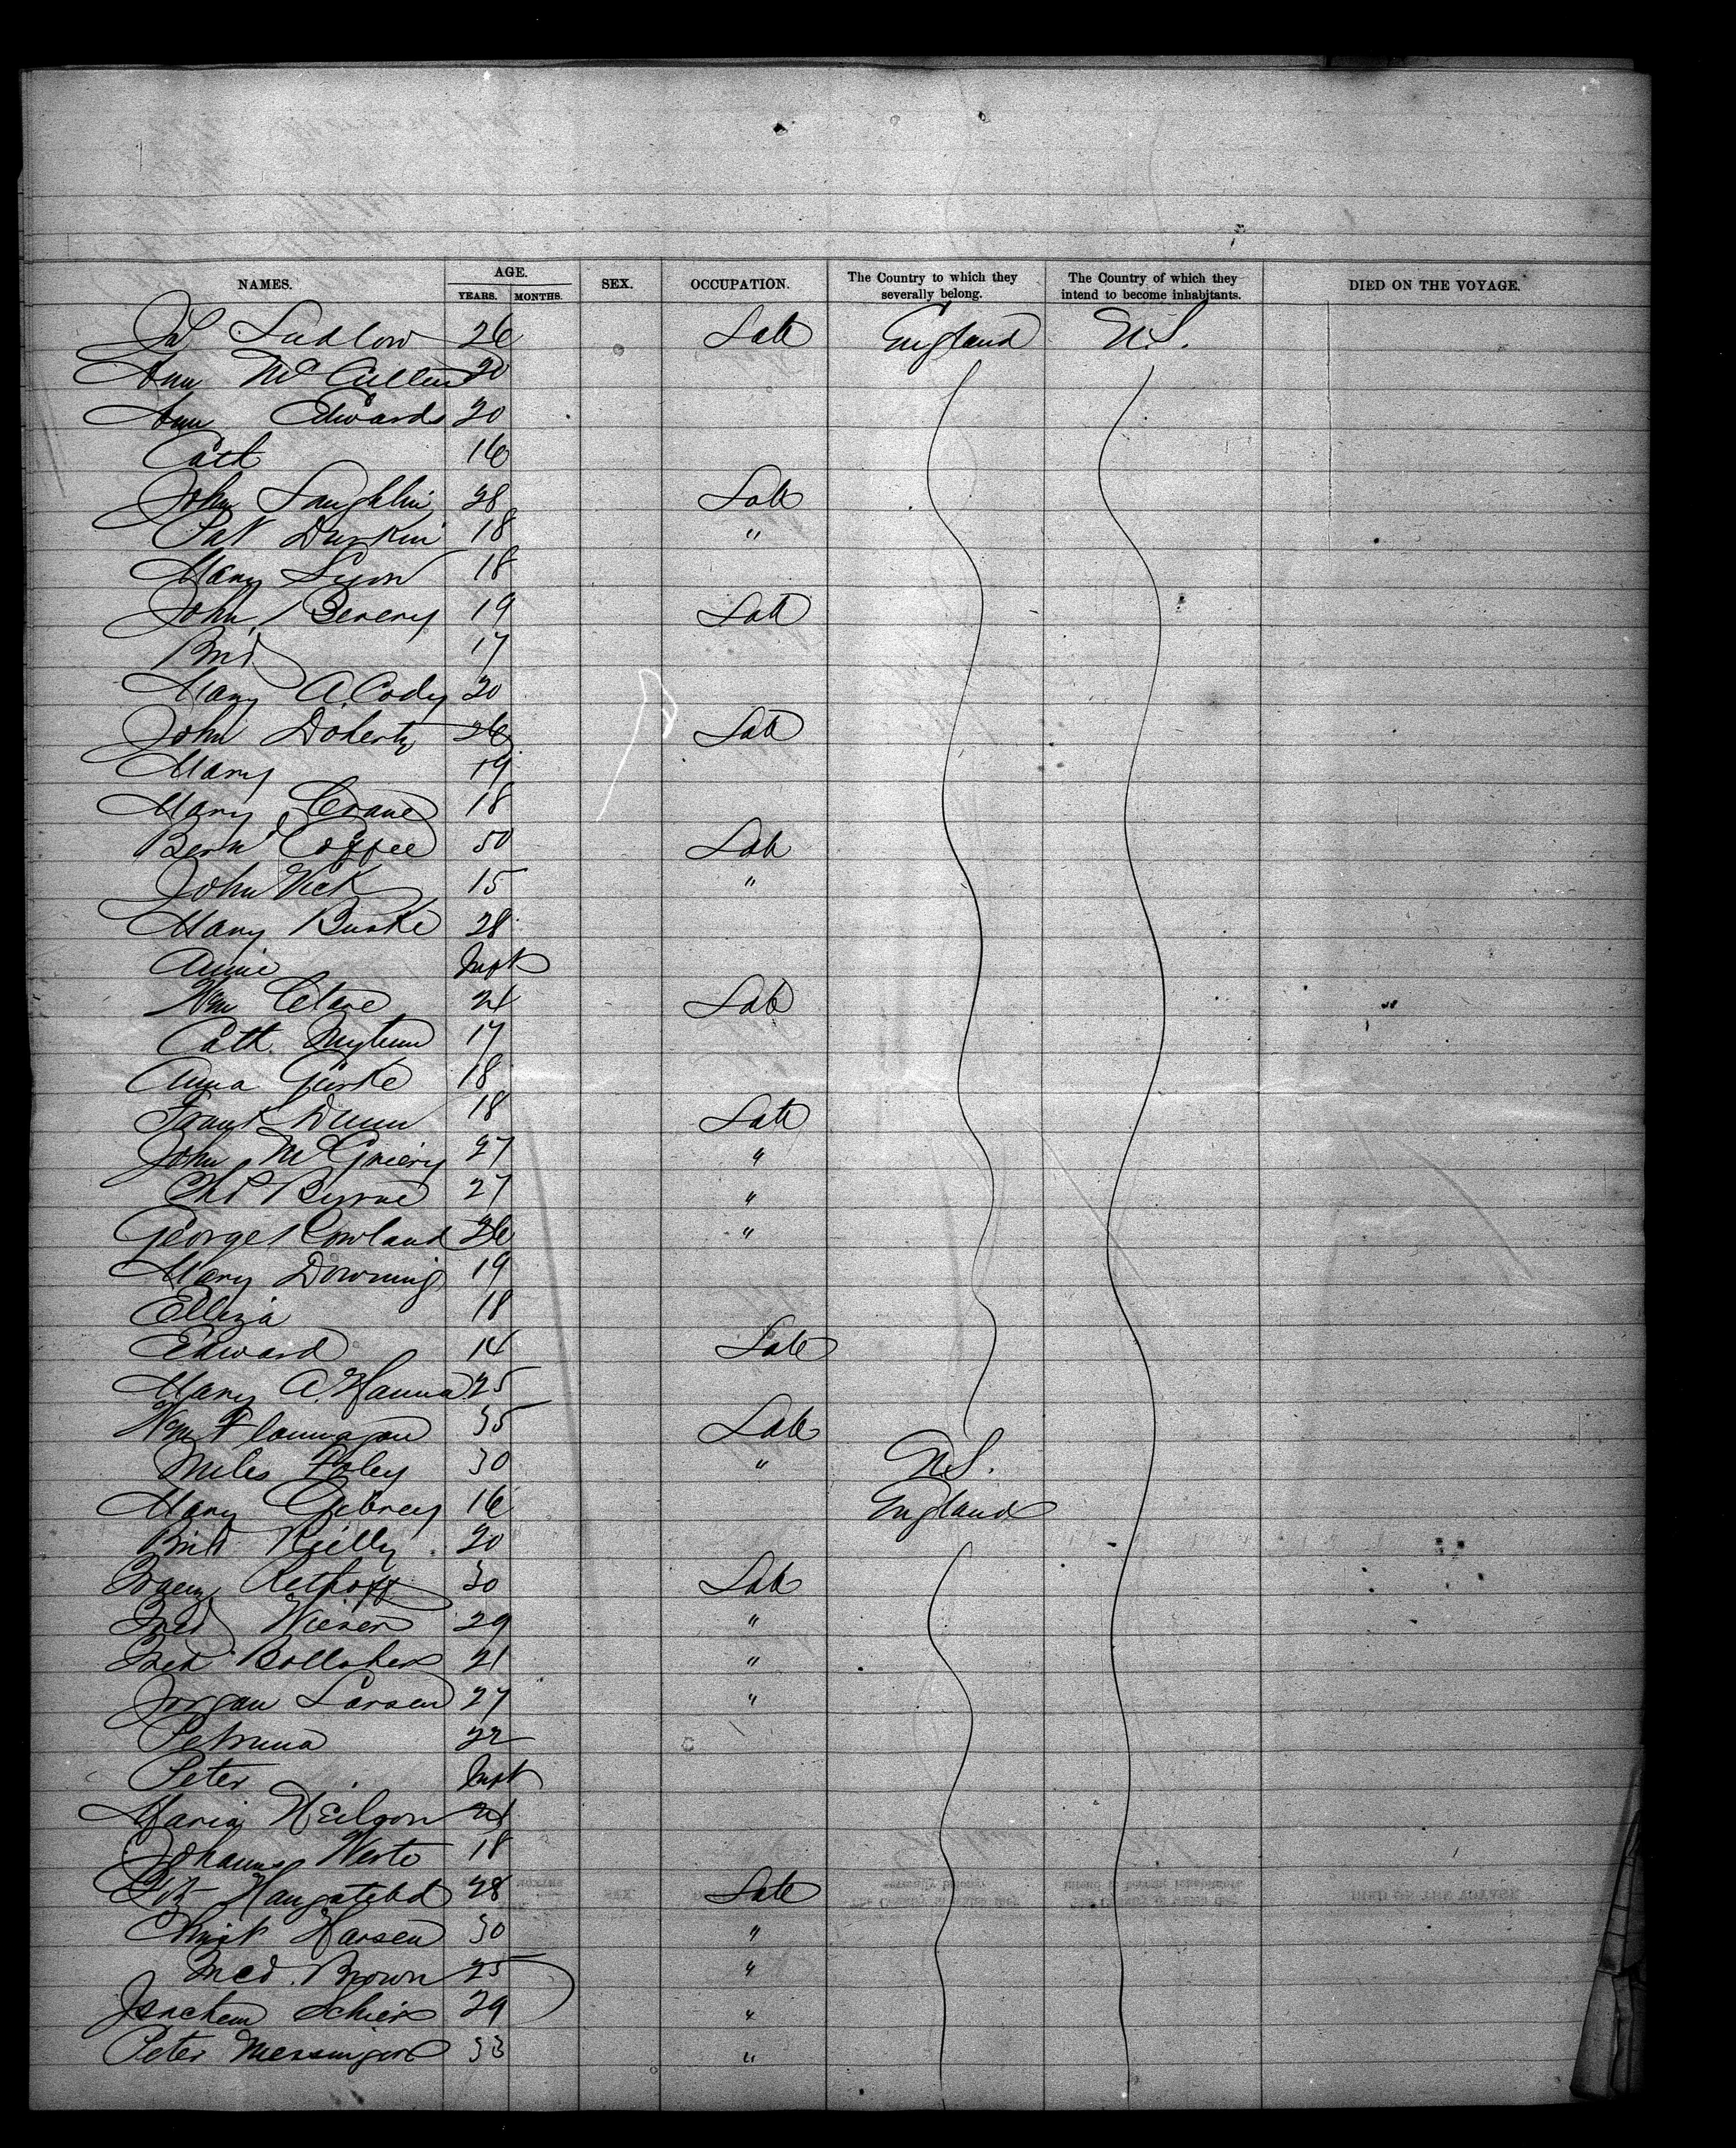 NAMES. AGE. SEX. OCCUPATION. The Country to which they severally belong. The Country of which they intend to become inhabitants. DIED ON THE VOYAGE.
YEARS. MONTHS.
Ludlow 26 Lab England U.S.
Ann McCullen 20
Ann Edwards 20
Cath 16
John Laughlin 28 Lab
Pat Durkin 18 "
Mary Lyon 18
John 19 Lab
Brid 17
Mary A. Cody 20
John Doherty 26 Lab
Mary 19
Mary Crane 18
Bern Coffee 50 Lab
John 15 "
Mary Burke 28
Annie Inft
Wm Clare 21 Lab
Cath. 17
Anna 18
Frank Dunn 18 Lab
John 27 "
Byrne 27 "
George Rowland 26 "
Mary Downing 19
Elleza 18
Edward 14 Lab
Mary A. Hanna 25
Wm Flannagan 35 Lab
Miles Foley 30 " U.S.
Mary 16 England
Brid Reilly 20
Franz Rethoff 30 Lab
Fred Wiesen 29 "
Fred 21 "
Jorgan Larsen 27 "
Petruna 22
Peter Inft
Maria Neilson 21
18
28 Lab
Christ Hansen 30 "
Fred. Brown 25 "
29 "
Peter 33 "